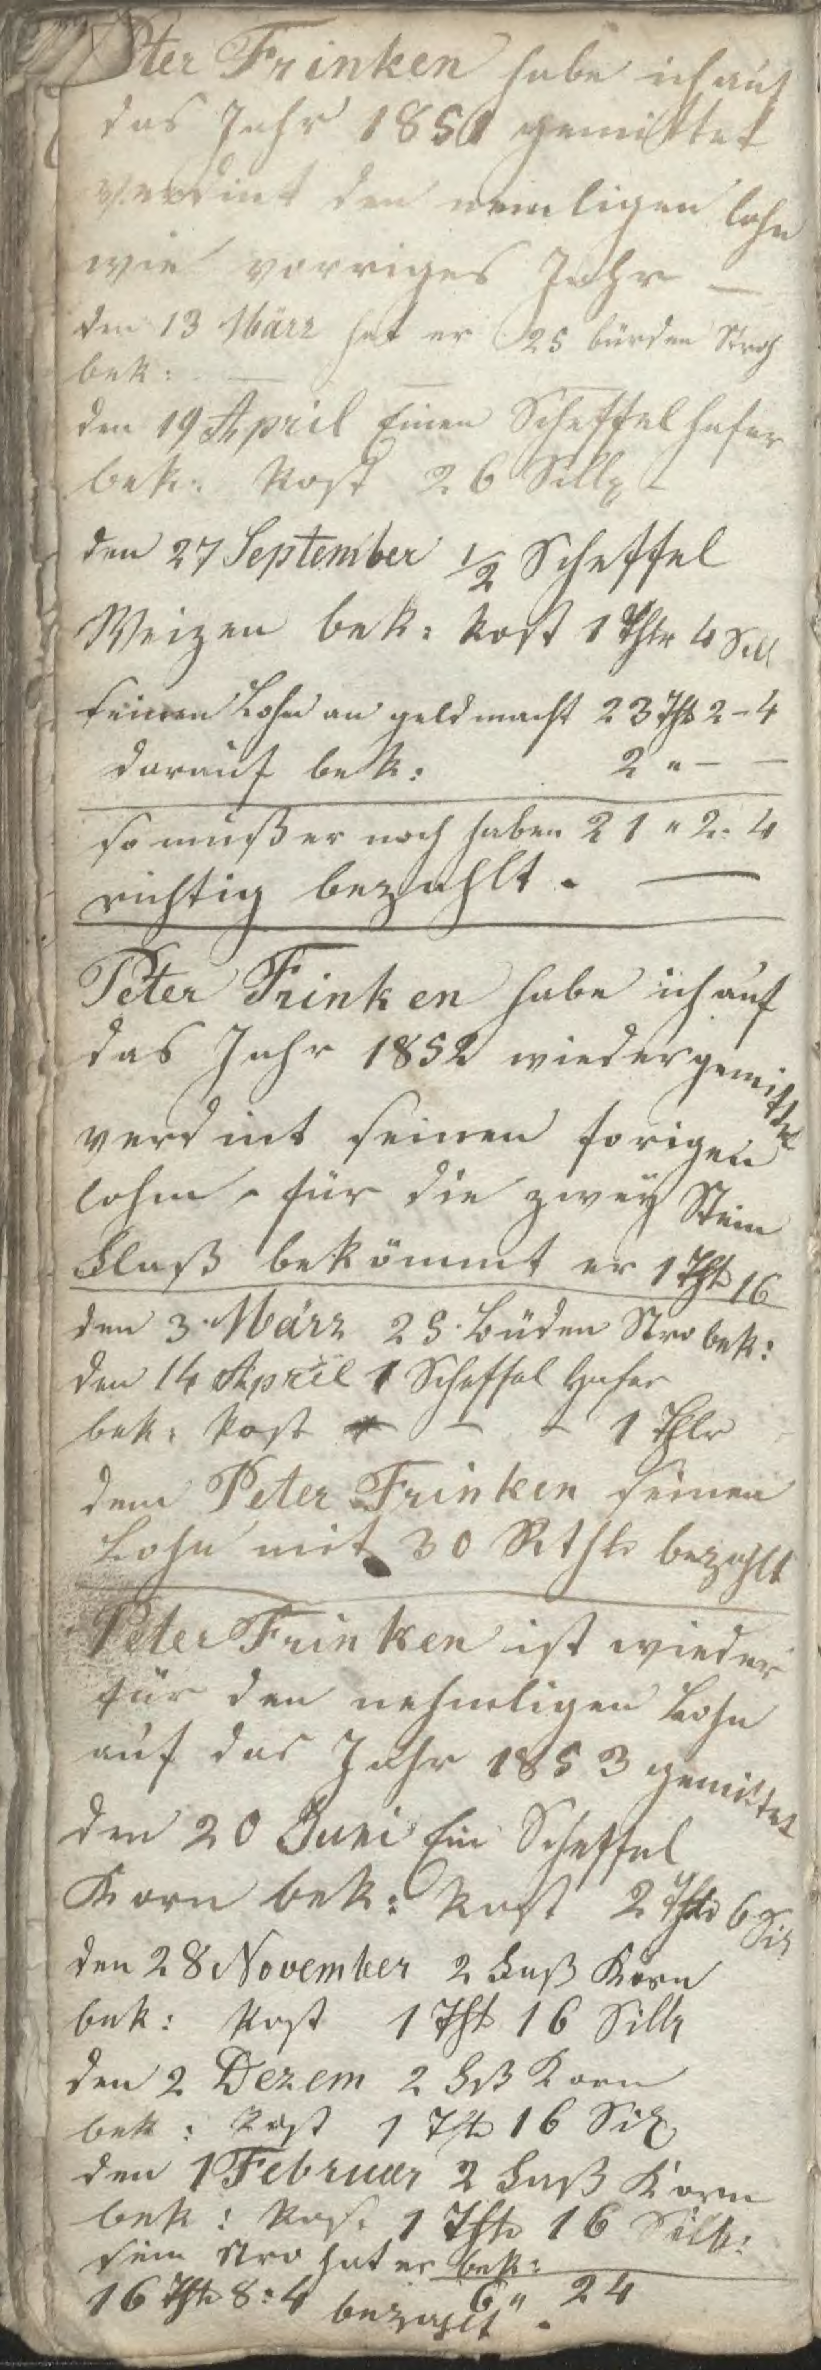 Peter Frinken habe ich auf
das Jahr 1851 gemittet
verdint den nemligen lohn
wie vorriges Jahr —
den 13 März hat er 25 bürden Stroh
bek: — —
den 19 April Einen Scheffel hafer
bek: Kost 26 Sillg
den 27 September 1/2 Scheffel
Weizen bek: Kost 1 Thlr 4 Sill
seinen Lohn an geld macht 23 Thl 2-4
darauf bek: 2 " - -
so muß er noch haben 21 " 2 - 4
richtig bezahlt. —
Peter Frinken habe ich auf
das Jahr 1852 wieder gemittet
verdint seinen forigen
lohn - für die zweÿ Stein
Flaß bekömmt er 1 Thl 16
den 3. März 25. Büden Stro bek:
den 14 April 1 Scheffel Hafer
bek: Kost - - 1 Thlr
dem Peter Frinken seinen
Lohn mit 30 Rthl bezahlt
Peter Frinken ist wieder
für den nehmligen Lohn
auf das Jahr 1853 gemittet
den 20 Juni Ein Scheffel
Korn bek: Kost 2 Thl 6 Sil
den 28 November 2 Faß Korn
bek: Kost 1 Thl 16 Sillg
den 2 Dezem 2 Fß Korn
bek: Kost 1 Thl 16 Silg
den 1 Februar 2 Faß Korn
bek: Kost 1 Thl 16 Silb:
sein Stro hat er bek:
6 " 24
16 Thl 8:4 bezahlt.